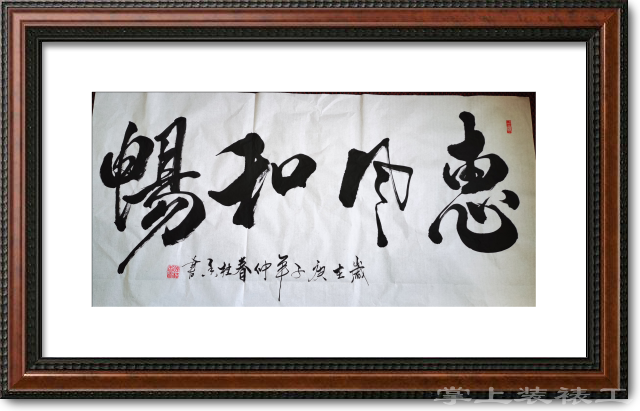 惠风和暢
歲在庚子年仲春杜書
掌上装裱工